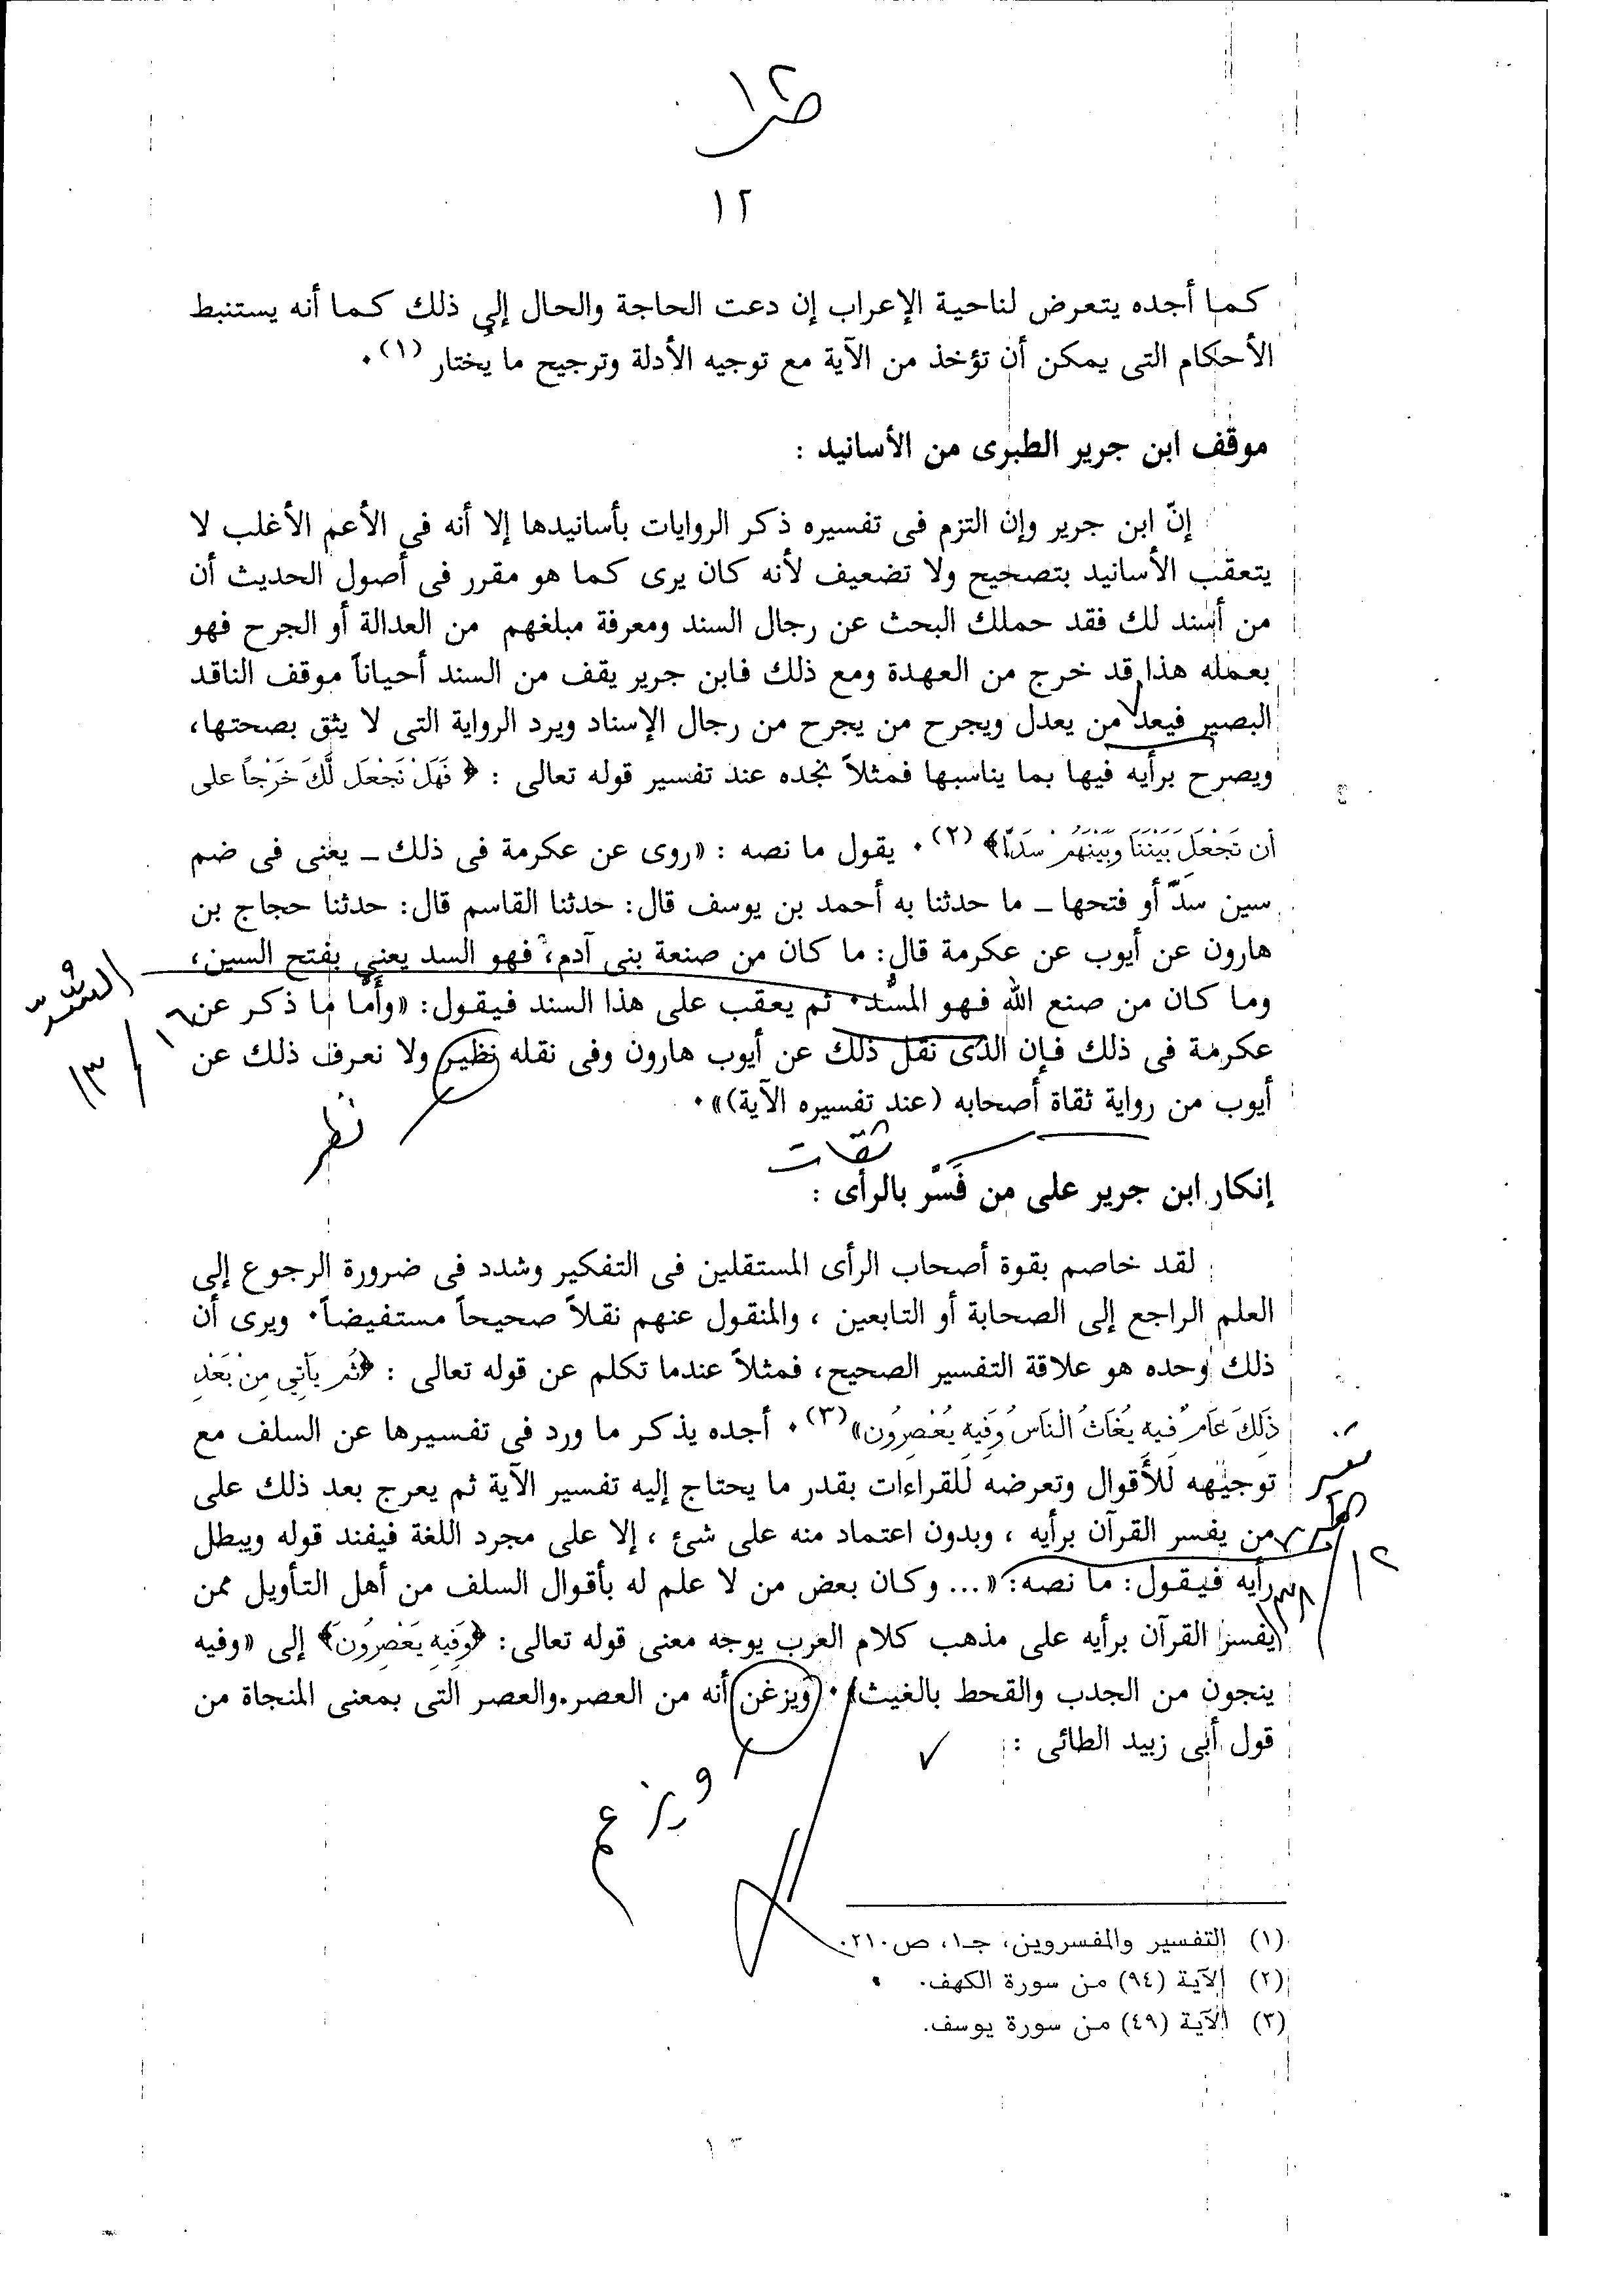 طبرا ١٢
١٢
كما أجده يتعرض لناحية الإعراب إن دعت الحاجة والحال إلى ذلك كما أنه يستنبط
الأحكام التى يمكن أن تؤخذ من الآية مع توجيه الأدلة وترجيح ما يُختار (١).
موقف ابن جرير الطبرى من الأسانيد :
إنّ ابن جرير وإن التزم فى تفسيره ذكر الروايات بأسانيدها إلا أنه فى الأعم الأغلب لا
يتعقب الأسانيد بتصحيح ولا تضعيف لأنه كان يرى كما هو مقرر فى أصول الحديث أن
من أسند لك فقد حملك البحث عن رجال السند ومعرفة مبلغهم من العدالة أو الجرح فهو
بعمله هذا قد خرج من العهدة ومع ذلك فابن جرير يقف من السند أحياناً موقف الناقد
البصير فيعدل من يعدل ويجرح من يجرح من رجال الإسناد ويرد الرواية التى لا يثق بصحتها،
ويصرح برأيه فيها بما يناسبها فمثلاً نجده عند تفسير قوله تعالى : ﴿ فَهَلْ نَجْعَل لَّكَ خَرْجاً على
أن تَجْعَلَ بَيْنَنَا وَبَيْنَهُمْ سَدّاً﴾ (٢). يقول ما نصه : «روى عن عكرمة فى ذلك ــ يعنى فى ضم
سين سَدّ أو فتحها ــ ما حدثنا به أحمد بن يوسف قال: حدثنا القاسم قال: حدثنا حجاج بن
هارون عن أيوب عن عكرمة قال: ما كان من صنعة بنى آدم، فهو السد يعنى بفتح السين،
السُّدّ
وما كان من صنع الله فهو المسُّد. ثم يعقب على هذا السند فيقول: «وأمَّا ما ذكر عن
١٦ / ١٣
عكرمة فى ذلك فإن الذى نقل ذلك عن أيوب هارون وفى نقله نظير ولا نعرف ذلك عن
أيوب من رواية ثقاة أصحابه (عند تفسيره الآية)».
نظر
ثقات
إنكار ابن جرير على من فَسَّر بالرأى :
لقد خاصم بقوة أصحاب الرأى المستقلين فى التفكير وشدد فى ضرورة الرجوع إلى
العلم الراجع إلى الصحابة أو التابعين ، والمنقول عنهم نقلاً صحيحاً مستفيضاً. ويرى أن
ذلك وحده هو علاقة التفسير الصحيح، فمثلاً عندما تكلم عن قوله تعالى : ﴿ثُم يَأْتِي مِنْ بَعْدِ
ذَلِكَ عَامٌ فيهِ يُغَاثُ الْنَاسُ وَفِيهِ يُعْصِرُون﴾(٣). أجده يذكر ما ورد فى تفسيرها عن السلف مع
توجيهه للأقوال وتعرضه للقراءات بقدر ما يحتاج إليه تفسير الآية ثم يعرج بعد ذلك على
تفسير
من يفسر القرآن برأيه ، وبدون اعتماد منه على شئ ، إلا على مجرد اللغة فيفند قوله ويبطل
١٢
رأيه فيقول: ما نصه: «... وكان بعض من لا علم له بأقوال السلف من أهل التأويل ممن
يفسر القرآن برأيه على مذهب كلام العرب يوجه معنى قوله تعالى: ﴿وَفِيهِ يَعْصِرُونَ﴾ إلى «وفيه
ينجون من الجدب والقحط بالغيث». ويزغن أنه من العصر. والعصر التى بمعنى المنجاة من
قول أبى زبيد الطائى :
ويزعم
(١) التفسير والمفسروين، جـ١، ص٢١٠.
(٢) الآية (٩٤) من سورة الكهف.
(٣) الآية (٤٩) من سورة يوسف.
١٣